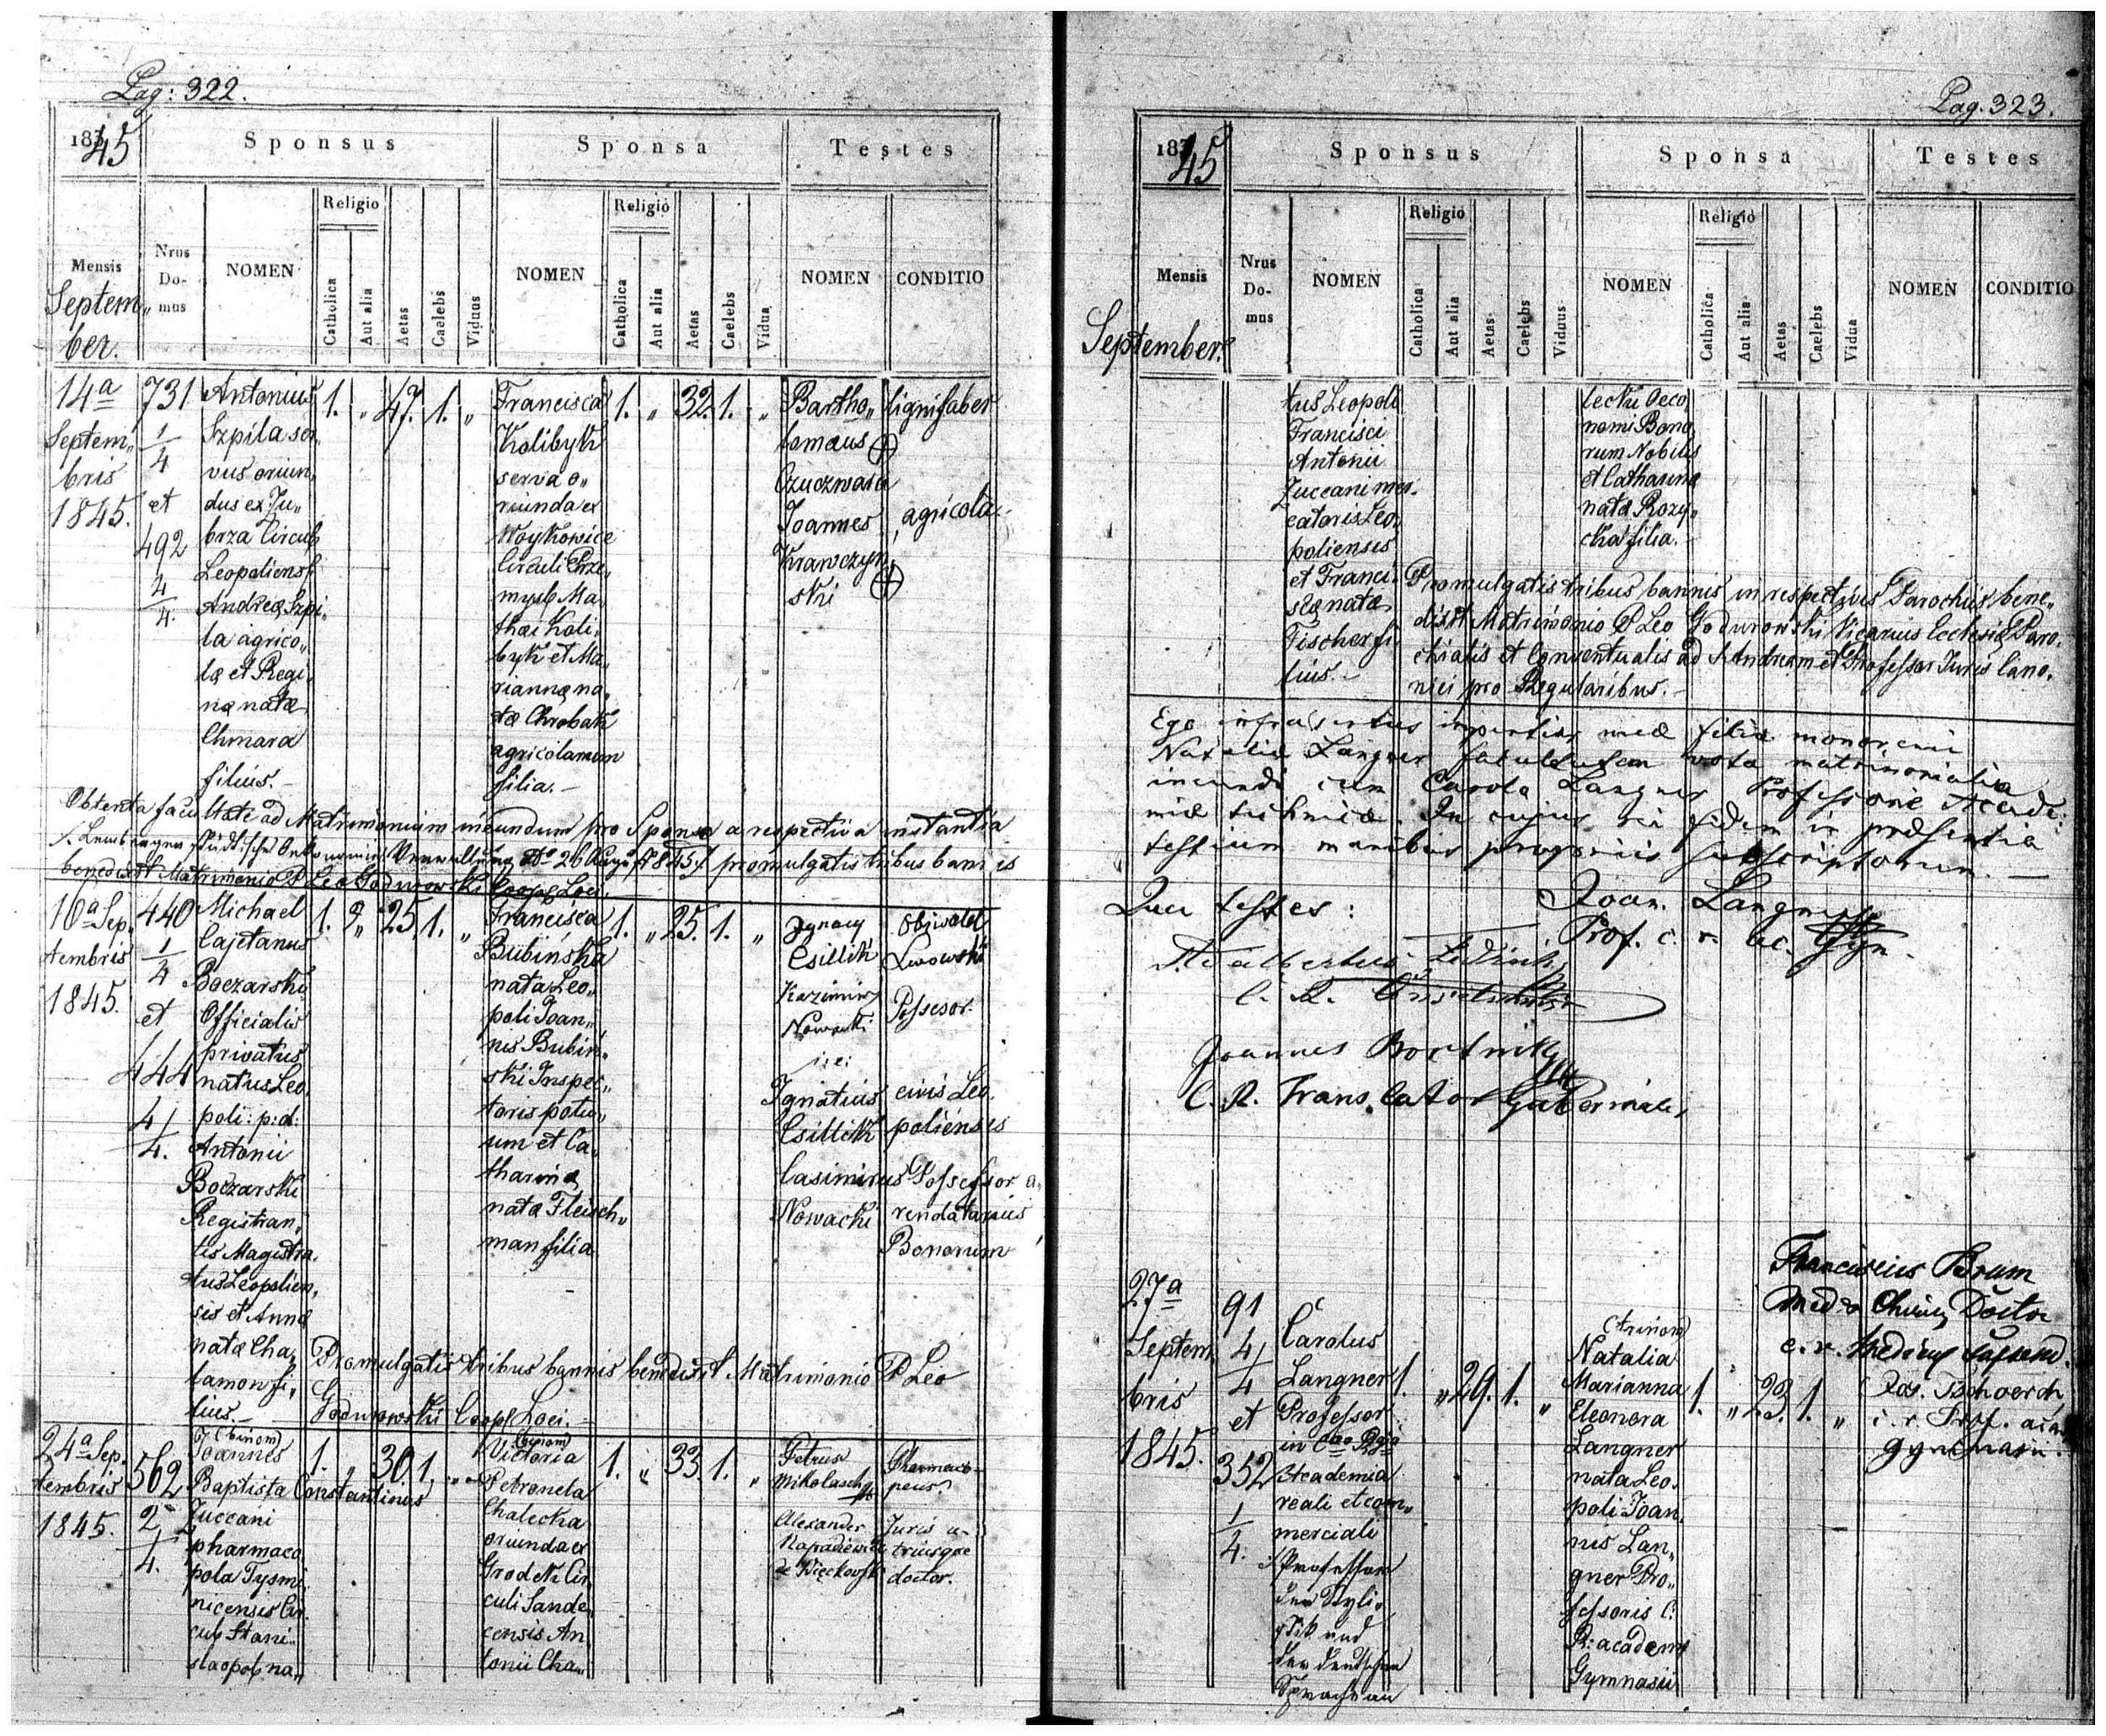 Pag: 322.
1845
Sponsus
Sponsa
Testes
Mensis
Septem„
ber.
Nrus
Do-
mus
NOMEN
Religio
Catholica
Aut alia
Aetas
Caelebs
Viduus
NOMEN
Religio
Catholica
Aut alia
Aetas
Caelebs
Vidua
NOMEN
CONDITIO
14a
Septem„
bris
1845.
731
1/4
et
492
4/4.
Antonius
Szpila ser„
vus oriun„
dus ex Ju„
brza Circuli
Leopoliens:
Andreæ Szpi„
la agrico„
læ et Regi„
næ natæ
Chmara
filius.—
1. „ 47. 1. „
Francisca
Kolibyk
serva o„
riunda ex
Woykowice
Circuli Prze„
mysl Ma„
thæi Koli„
byk et Ma„
riannæ na„
tæ Chrobak
agricolarum
filia.—
1. „ 32. 1. „
Bartho„
lomæus
Czuczwara
Joannes
Krawczyn„
ski
lignifaber
agricola.
Obtenta facultate ad Matrimonium ineundum pro Sponsa a respectiva instantia
promulgatis tribus bannis
benedixit Matrimonio P Leo Godurowski Coop Loci.
16a Sep„
tembris
1845.
440
1/4
et
444
4/4.
Michael
Cajetanus
Boczarski
Officialis
privatus
natus Leo„
poli: p: d:
Antonii
Boczarski
Registran„
tis Magistra„
tus Leopolien„
sis et Annæ
natæ Cha„
lamon fi„
lius.—
1. „ 25. 1. „
Francisca
Bubińska
nata Leo„
poli Joan„
nis Bubiń„
ski Inspec„
toris potu„
um et Ca„
tharinæ
natæ Fleisch„
man filia
1. „ 25. 1. „
Ignacy
Csillik
Kazimirz
Nowacki
i: e:
Ignatius
Csillik
Casimirus
Nowacki
Obiwatel
Lwowski
Possesor.
civis Leo„
poliensis
Possessor a„
rendatarius
Bonorum
Promulgatis tribus bannis benedixit Matrimonio P Leo
Godurowski Coop Loci.—
24a Sep„
tembris
1845.
562
2/4.
(binom)
Joannes
Baptista Constantinus
Zuccani
pharmaco„
pola Tysmi„
nicensis Cir„
culi Stani„
slaopol. na„
1. „ 30. 1. „
(binom)
Victoria
Petronela
Chalecka
oriunda ex
Grodek Cir„
culi Sande„
censis An„
tonii Cha„
1. „ 33. 1. „
Petrus
Mikolasch
Alexander
de Więckowski
Pharmaco-
peus.
Juris u-
triusque
doctor.
Pag. 323.
1845
Sponsus
Sponsa
Testes
Mensis
September.
Nrus
Do-
mus
NOMEN
Religio
Catholica
Aut alia
Aetas
Caelebs
Viduus
NOMEN
Religio
Catholica
Aut alia
Aetas
Caelebs
Vidua
NOMEN
CONDITIO
tus Leopoli
Francisci
Antonii
Zuccani mer„
catoris Leo„
poliensis
et Franci„
scæ natæ
Fischer fi„
lius.—
lecki Oeco„
nomi Bono„
rum Nobilis
et Catharinæ
natæ Rozy„
cka filia.—
Promulgatis tribus bannis in respectivis Parochiis bene„
dixit Matrimonio P Leo Godurowski Vicarius Ecclesiæ Paro„
chialis et Conventualis ad S Andream et Professor Juris Cano„
nici pro Regularibus.—
Ego infrascriptus impertior meæ filiæ minorenni
Nataliæ Langner facultatem vota matrimonialia
ineundi cum Carolo Langner Professore Acade:
miæ technicæ. In cujus rei fidem in præsentia
testium manibus propriis subscriptorum.—
Joan. Langner
Prof. c. r. ac. Gyn.
Qua testes:
Adalbertus
Joannes Bortnik
C. R. Translator Gubernialis
27a
Septem„
bris
1845.
91
4/4
et
352
1/4.
Carolus
Langner
Professor
in Cæo Rgia
Academia
reali et com„
merciali
Professor
der Styli„
stik und
der deutschen
Sprache an
1. „ 29. 1. „
(trinom)
Natalia
Marianna
Eleonora
Langner
nata Leo„
poli Joan„
nis Lan„
gner Pro„
fessoris C:
R: academ
Gymnasii
1. „ 23. 1. „
Franciscus Brum
Med. & Chirurg Doctor
Jos. Tschoerch
c. r. Prof. acad
gymnasii.